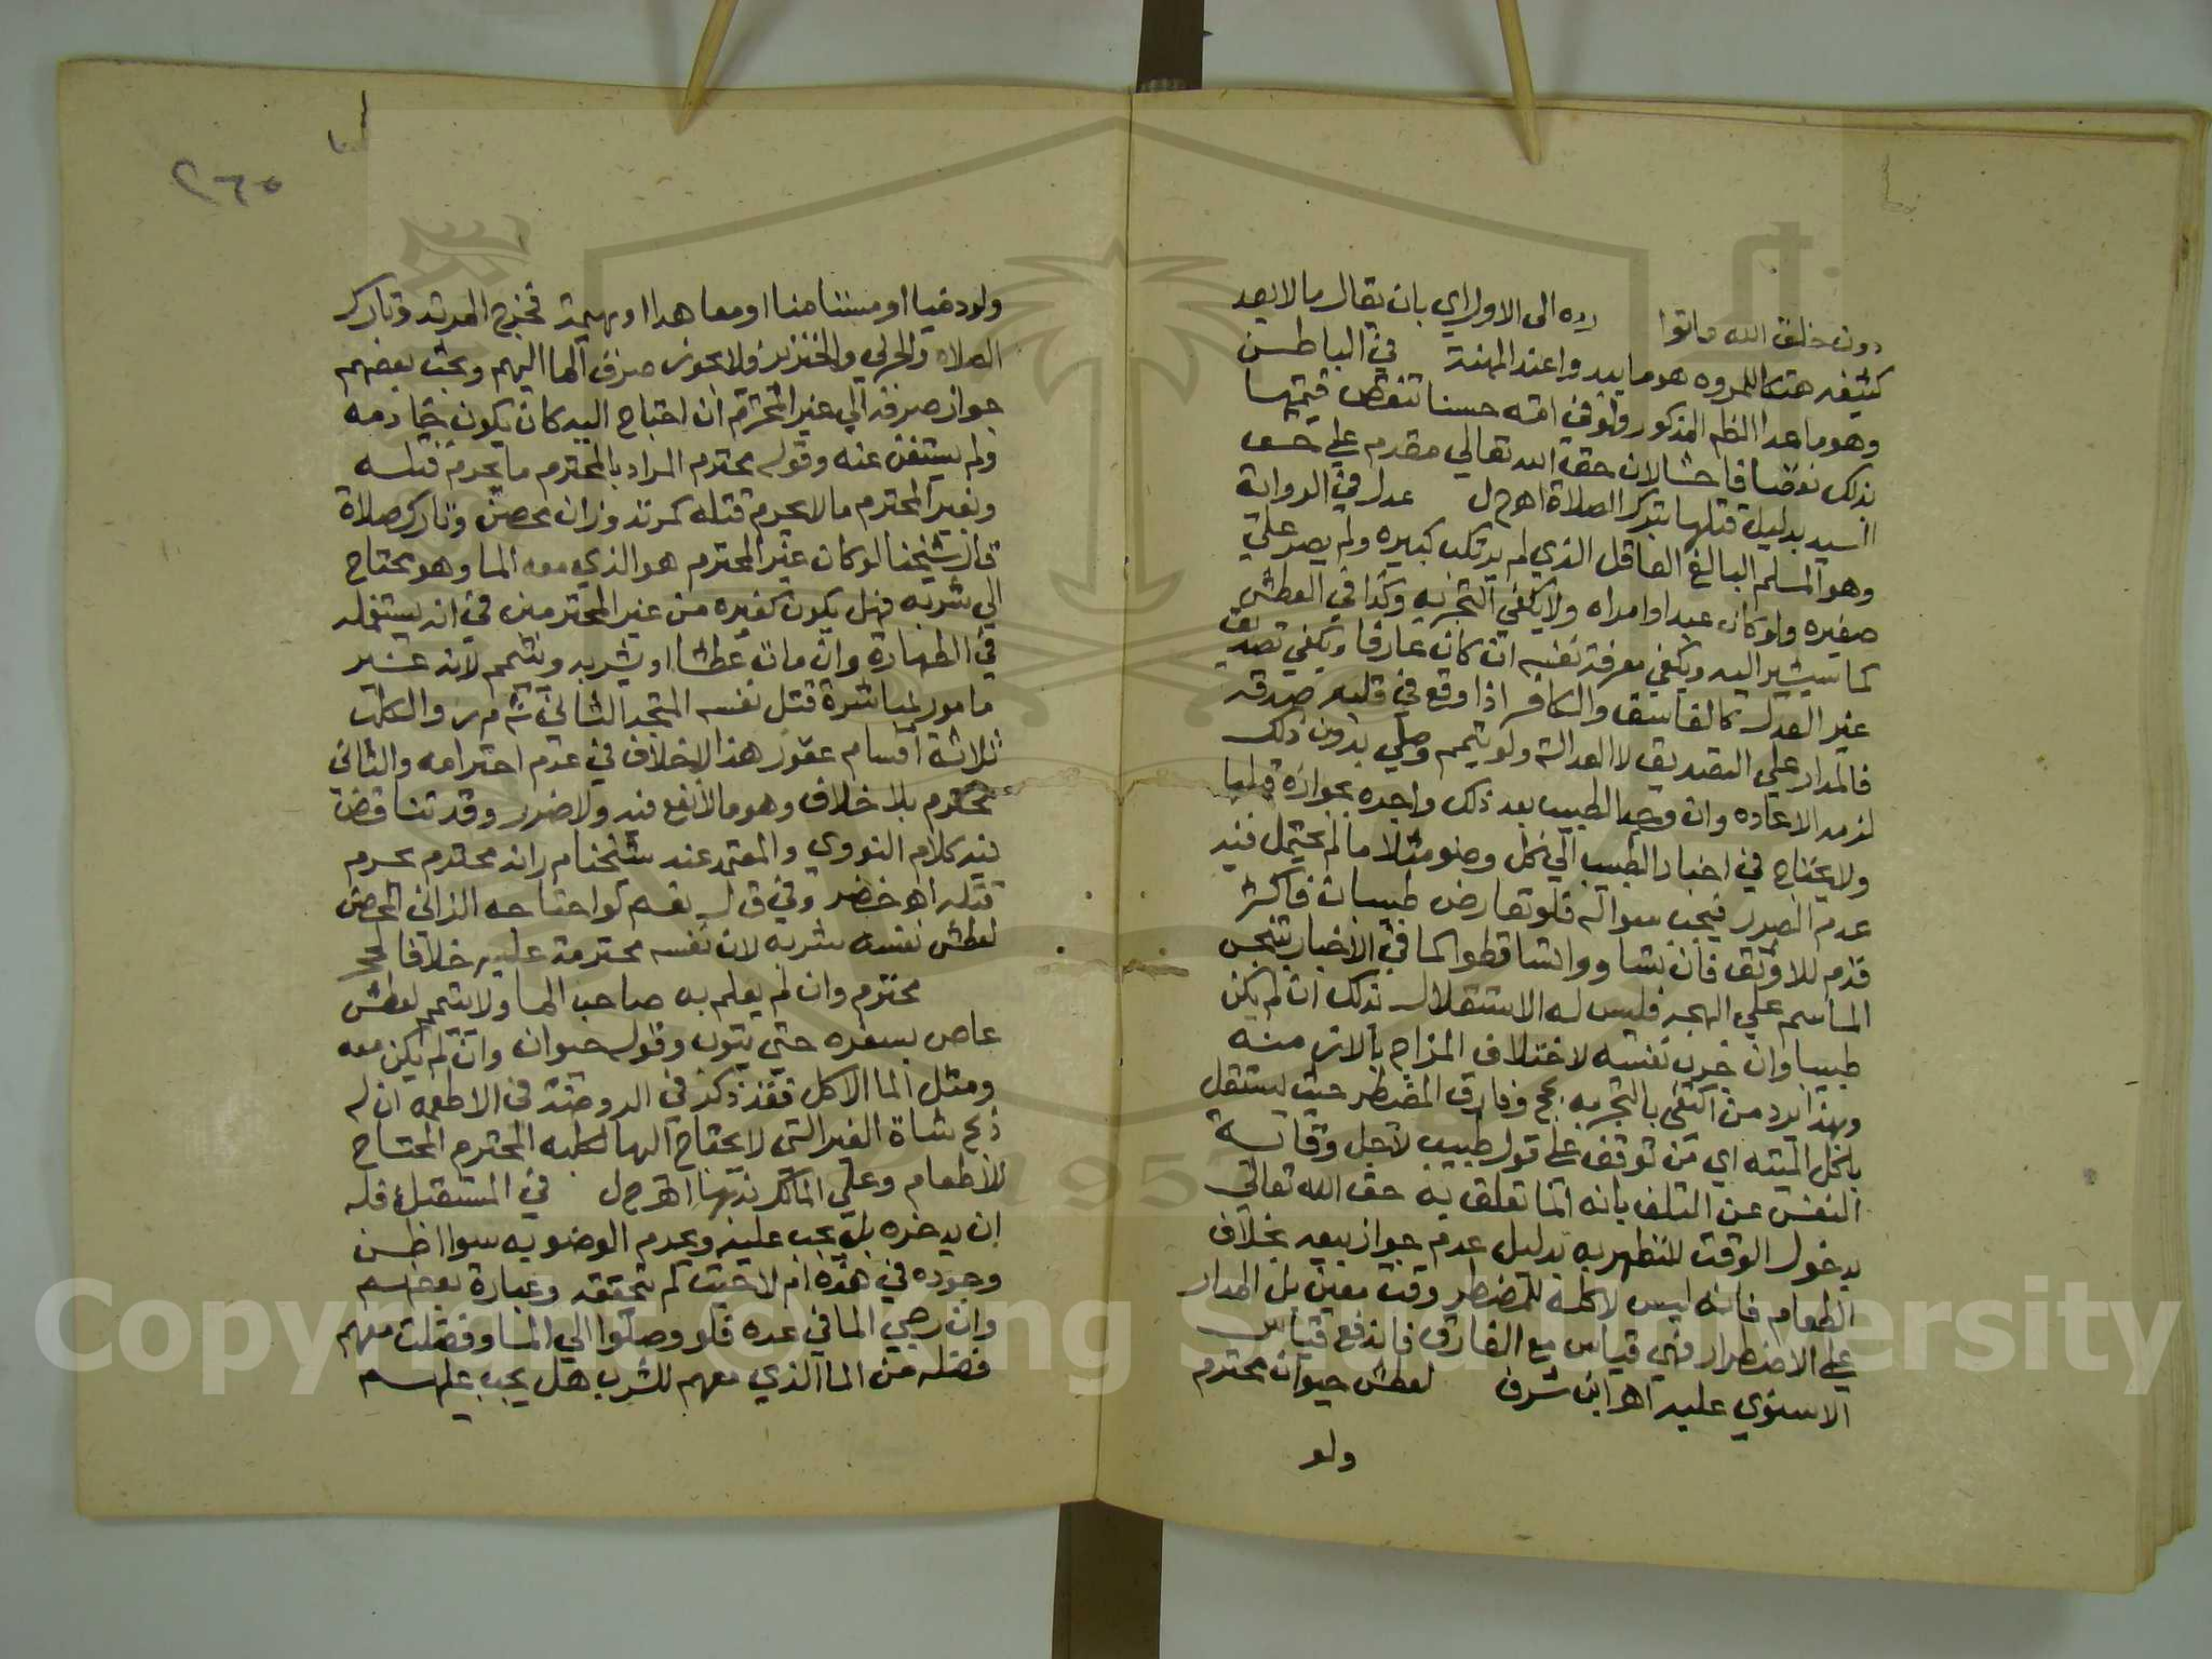 دون خلق الله ماتوا رده الى الاول اي بان يقال ما لا يعد
كشفه هتكا للمروه هو ما يبدوا عند المهنة في الباطن
وهو ما عدا الظاهر المذكور ولو في امة حسنا تنقص قيمتها
بذلك نقصا فاحشا لان حق الله تعالي مقدم علي حق
السيد بدليل قتلها بترك الصلاة اهـ ح ل عدل في الرواية
وهو المسلم البالغ العاقل الذي لم يرتكب كبيره ولم يصر علي
صغيره ولو كان عبدا او امراه ولا يكفي التجربه وكذا في العطش
كما سيشير اليه ويكفي معرفة نفسه ان كان عارفا ويكفي تصديق
غير العدل كالفاسق والكافر اذا وقع في قلبه صدقه
فالمدار علي التصديق لا العدالة ولو تيمم وصلي بدون ذلك
لزمه الاعاده وان وجد الطبيب بعد ذلك واخبره بجوازه قبلها
ولا يحتاج في اخبار الطبيب الي كل وضو مثلا ما لم يحتمل فيه
عدم الضرر فيجب سواله فلو تعارض طبيبان فاكثر
قدم للاوثق فان تساووا تساقطوا كما في الاخبار بتنجس
الماسم علي البهجه فليس له الاستقلال بذلك ان لم يكن
طبيبا وان جرب نفسه لاختلاف المزاج بالازمنه
وبهذا يرد من اكتفي بالتجربه حج وفارق المضطر حيث يستقل
باكل الميته اي من توقف علي قول طبيب لاجل وقاية
النفس عن التلف بانه انما تعلق به حق الله تعالي
بدخول الوقت للتطهر به بدليل عدم جواز بيعه بخلاف
الطعام فانه ليس لاكله للمضطر وقت معين بل المدار
علي الاضطرار فهي قياس مع الفارق فاندفع قياس
الاسنوي عليه اهـ ابن شرف لعطش حيوان محترم
ولو
٢٦٥
ولو ذميا او مستامنا او معاهدا او بهيمة فخرج المرتد وتارك
الصلاة والحربي والخنزير ولا يجوز صرف الما اليهم وبحث بعضهم
جواز صرفه الي غير المحترم ان احتاج اليه كان يكون خادمه
ولم يستغن عنه وقوله محترم المراد بالمحترم ما يحرم قتله
وبغير المحترم ما لا يحرم قتله كمرتد وزان محصن وتارك صلاة
قال شيخنا لو كان غير المحترم هو الذي معه الما وهو يحتاج
الي شربه فهل يكون كغيره من غير المحترمين في انه يستعمله
في الطهارة وان مات عطشا او يشربه ويتيمم لانه غير
مامور بمباشرة قتل نفسه المتجه الثاني ش م ر والكلب
ثلاثة اقسام عقور هذا لا خلاف في عدم احترامه والثاني
محترم بلا خلاف وهو ما لا نفع فيه ولا ضرر وقد تناقض
فيه كلام النووي والمعتمد عند شيخنا م ر انه محترم يحرم
قتله اهـ خضر وفي ق ل نعم لو احتاجه الزاني المحصن
لعطش نفسه شربه لان نفسه محترمة عليه خلافا لحج
محترم وان لم يعلم به صاحب الما ولا يتيمم لعطش
عاص بسفره حتي يتوب وقوله حيوان وان لم يكن معه
ومثل الما الاكل فقد ذكر في الروضة في الاطعمه ان له
ذبح شاة الغير التي لا يحتاج اليها لكلبه المحترم المحتاج
للاطعام وعلي المالك بذلها اهـ ح ل في المستقبل فله
ان يدخره بل يجب عليه ويحرم الوضو به سوا اظن
وجوده في هذه ام لا حيث لم يتحققه وعبارة بعضهم
وان رجي الما في غده فلو وصلوا الي الما وفضلت معهم
فضله من الما الذي معهم للشرب هل يجب عليهم
Copyright © King Saud University
1957